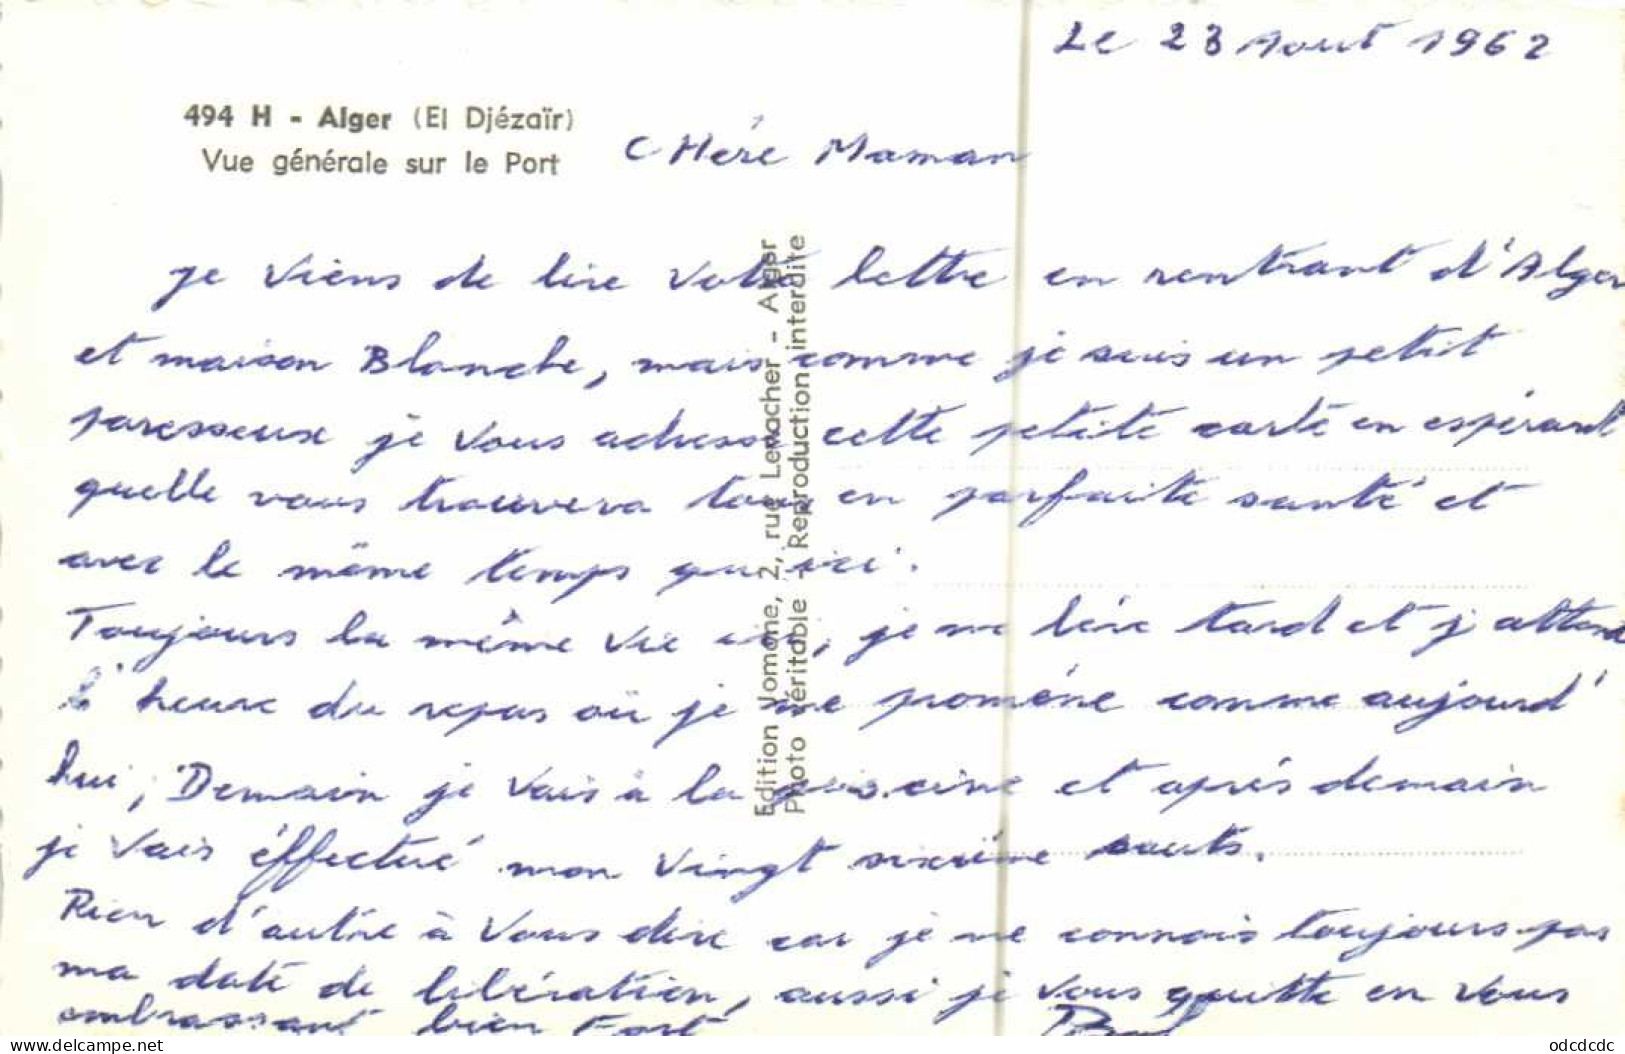 Le 23 Aout 1962
494 H - Alger (El Djézaïr)
Vue générale sur le Port
CHére Maman
je viens de lire votre lettre en rentrant d'Alger
et maison Blanche, mais comme je suis un petit
paresseux je vous adresse cette petite carte en espérant
quelle vous trouvera tous en parfaite santé et
avec le même temps qu'ici.
Toujours la même vie ici, je me lève tard et j attend
l' heure du repas où je me promène comme aujourd'
hui, Demain je vais à la piscine et après demain
je vais éffectué mon vingt sixième sauts.
Rien d'autre à vous dire car je ne connais toujours pas
ma date de libération, aussi je vous quitte en vous
embrassant bien Fort
Edition Jomone, 2, rue Levacher - Alger
Photo Véritable - Reproduction interdite
www.delcampe.net
odcdcdc